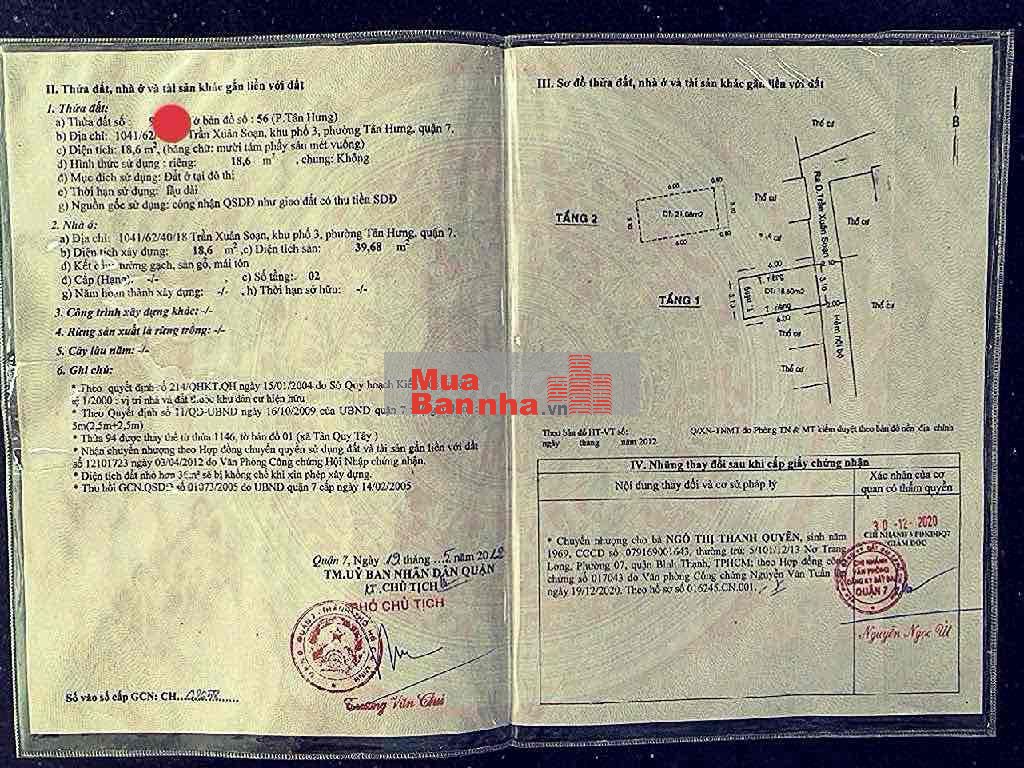 II. Thửa đất, nhà ở và tài sản khác gắn liền với đất
1. Thửa đất:
a) Thửa đất số: ờ bản đồ số : 56 (P.Tân Hưng)
b) Địa chỉ: 1041/62/ Trần Xuân Soạn, khu phố 3, phường Tân Hưng, quận 7.
c) Diện tích: 18,6 m², (bằng chữ: mười tám phẩy sáu mét vuông)
d) Hình thức sử dụng : riêng: 18,6 m², chung: Không
đ) Mục đích sử dụng: Đất ở tại đô thị
e) Thời hạn sử dụng: lâu dài
g) Nguồn gốc sử dụng: công nhận QSDĐ như giao đất có thu tiền SDĐ
2. Nhà ở:
a) Địa chỉ: 1041/62/40/18 Trần Xuân Soạn, khu phố 3, phường Tân Hưng, quận 7.
b) Diện tích xây dựng: 18,6 m², c) Diện tích sàn: 39,68 m²
d) Kết cấu: tường gạch, sàn gỗ, mái tôn
đ) Cấp (Hạng): -/- e) Số tầng: 02
g) Năm hoàn thành xây dựng: -/- h) Thời hạn sở hữu: -/-
3. Công trình xây dựng khác: -/-
4. Rừng sản xuất là rừng trồng: -/-
5. Cây lâu năm: -/-
6. Ghi chú:
* Theo quyết định số 214/QHKT.QH ngày 15/01/2004 do Sở Quy hoạch Kiế
1/2000 : vị trí nhà và đất thuộc khu dân cư hiện hữu
* Theo Quyết định số 11/QĐ-UBND ngày 16/10/2009 của UBND quận 7
5m(2,5m+2,5m)
* Thửa 94 được thay thế từ thửa 1146, tờ bản đồ 01 (xã Tân Quy Tây)
* Nhận chuyển nhượng theo Hợp đồng chuyển quyền sử dụng đất và tài sản gắn liền với đất
số 12101723 ngày 03/04/2012 do Văn Phòng Công chứng Hội Nhập chứng nhận.
* Diện tích đất nhỏ hơn 36m² sẽ bị khống chế khi xin phép xây dựng.
* Thu hồi GCN.QSDĐ số 01073/2005 do UBND quận 7 cấp ngày 14/02/2005
Quận 7, Ngày 19 tháng 5 năm 2012
TM.UỶ BAN NHÂN DÂN QUẬN
KT. CHỦ TỊCH
PHÓ CHỦ TỊCH
Trương Văn Chui
Số vào sổ cấp GCN: CH
III. Sơ đồ thửa đất, nhà ở và tài sản khác gắn liền với đất
B
Thổ cư
Thổ cư
Thổ cư
Ra Đ.Trần Xuân Soạn
6.00
0.80
TẦNG 2
3.10
DT: 21.08m2
3.10
6.00
0.80
6.00
2.10
TẦNG 1
3.10
T. riêng
DT: 18.60m2
T. riêng
3.10
6.00
2.00
Thổ cư
Thổ cư
Thổ cư
Hẻm nội bộ
Mua
Bannha.vn
Theo bản đồ HT-VT số:
ngày tháng năm 2012
Q/XN-TNMT do Phòng TN & MT kiểm duyệt theo bản đồ nền địa chính
IV. Những thay đổi sau khi cấp giấy chứng nhận
Nội dung thay đổi và cơ sở pháp lý
Xác nhận của cơ
quan có thẩm quyền
* Chuyển nhượng cho bà NGÔ THỊ THANH QUYÊN, sinh năm
1969, CCCD số 079169001643, thường trú: 5/101/12/13 Nơ Trang
Long, Phường 07, quận Bình Thạnh, TPHCM; theo Hợp đồng công
chứng số 017043 do Văn phòng Công chứng Nguyễn Văn Tuấn
ngày 19/12/2020. Theo hồ sơ số 016245.CN.001
30 -12- 2020
CHI NHÁNH VPĐKĐĐQ7
GIÁM ĐỐC
CHI NHÁNH
VĂN PHÒNG
ĐĂNG KÝ ĐẤT ĐAI
QUẬN 7
Nguyễn Ngọc Út